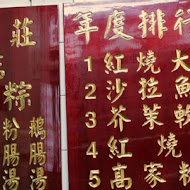 莊
粽
鵝腸湯
粉腸湯
年度排行
1紅燒大
2沙拉魚
3芥茉
4紅燒
5高家